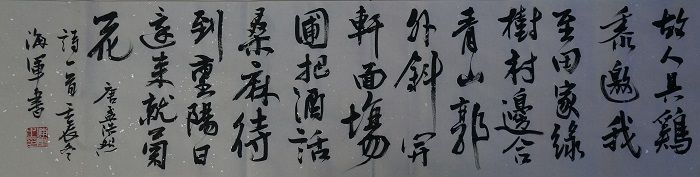 故人具鷄
黍邀我
至田家綠
樹村邊合
青山郭
外斜開
軒面場
圃把酒話
桑麻待
到重陽日
還來就菊
花
唐孟浩然
詩一首
海軍書